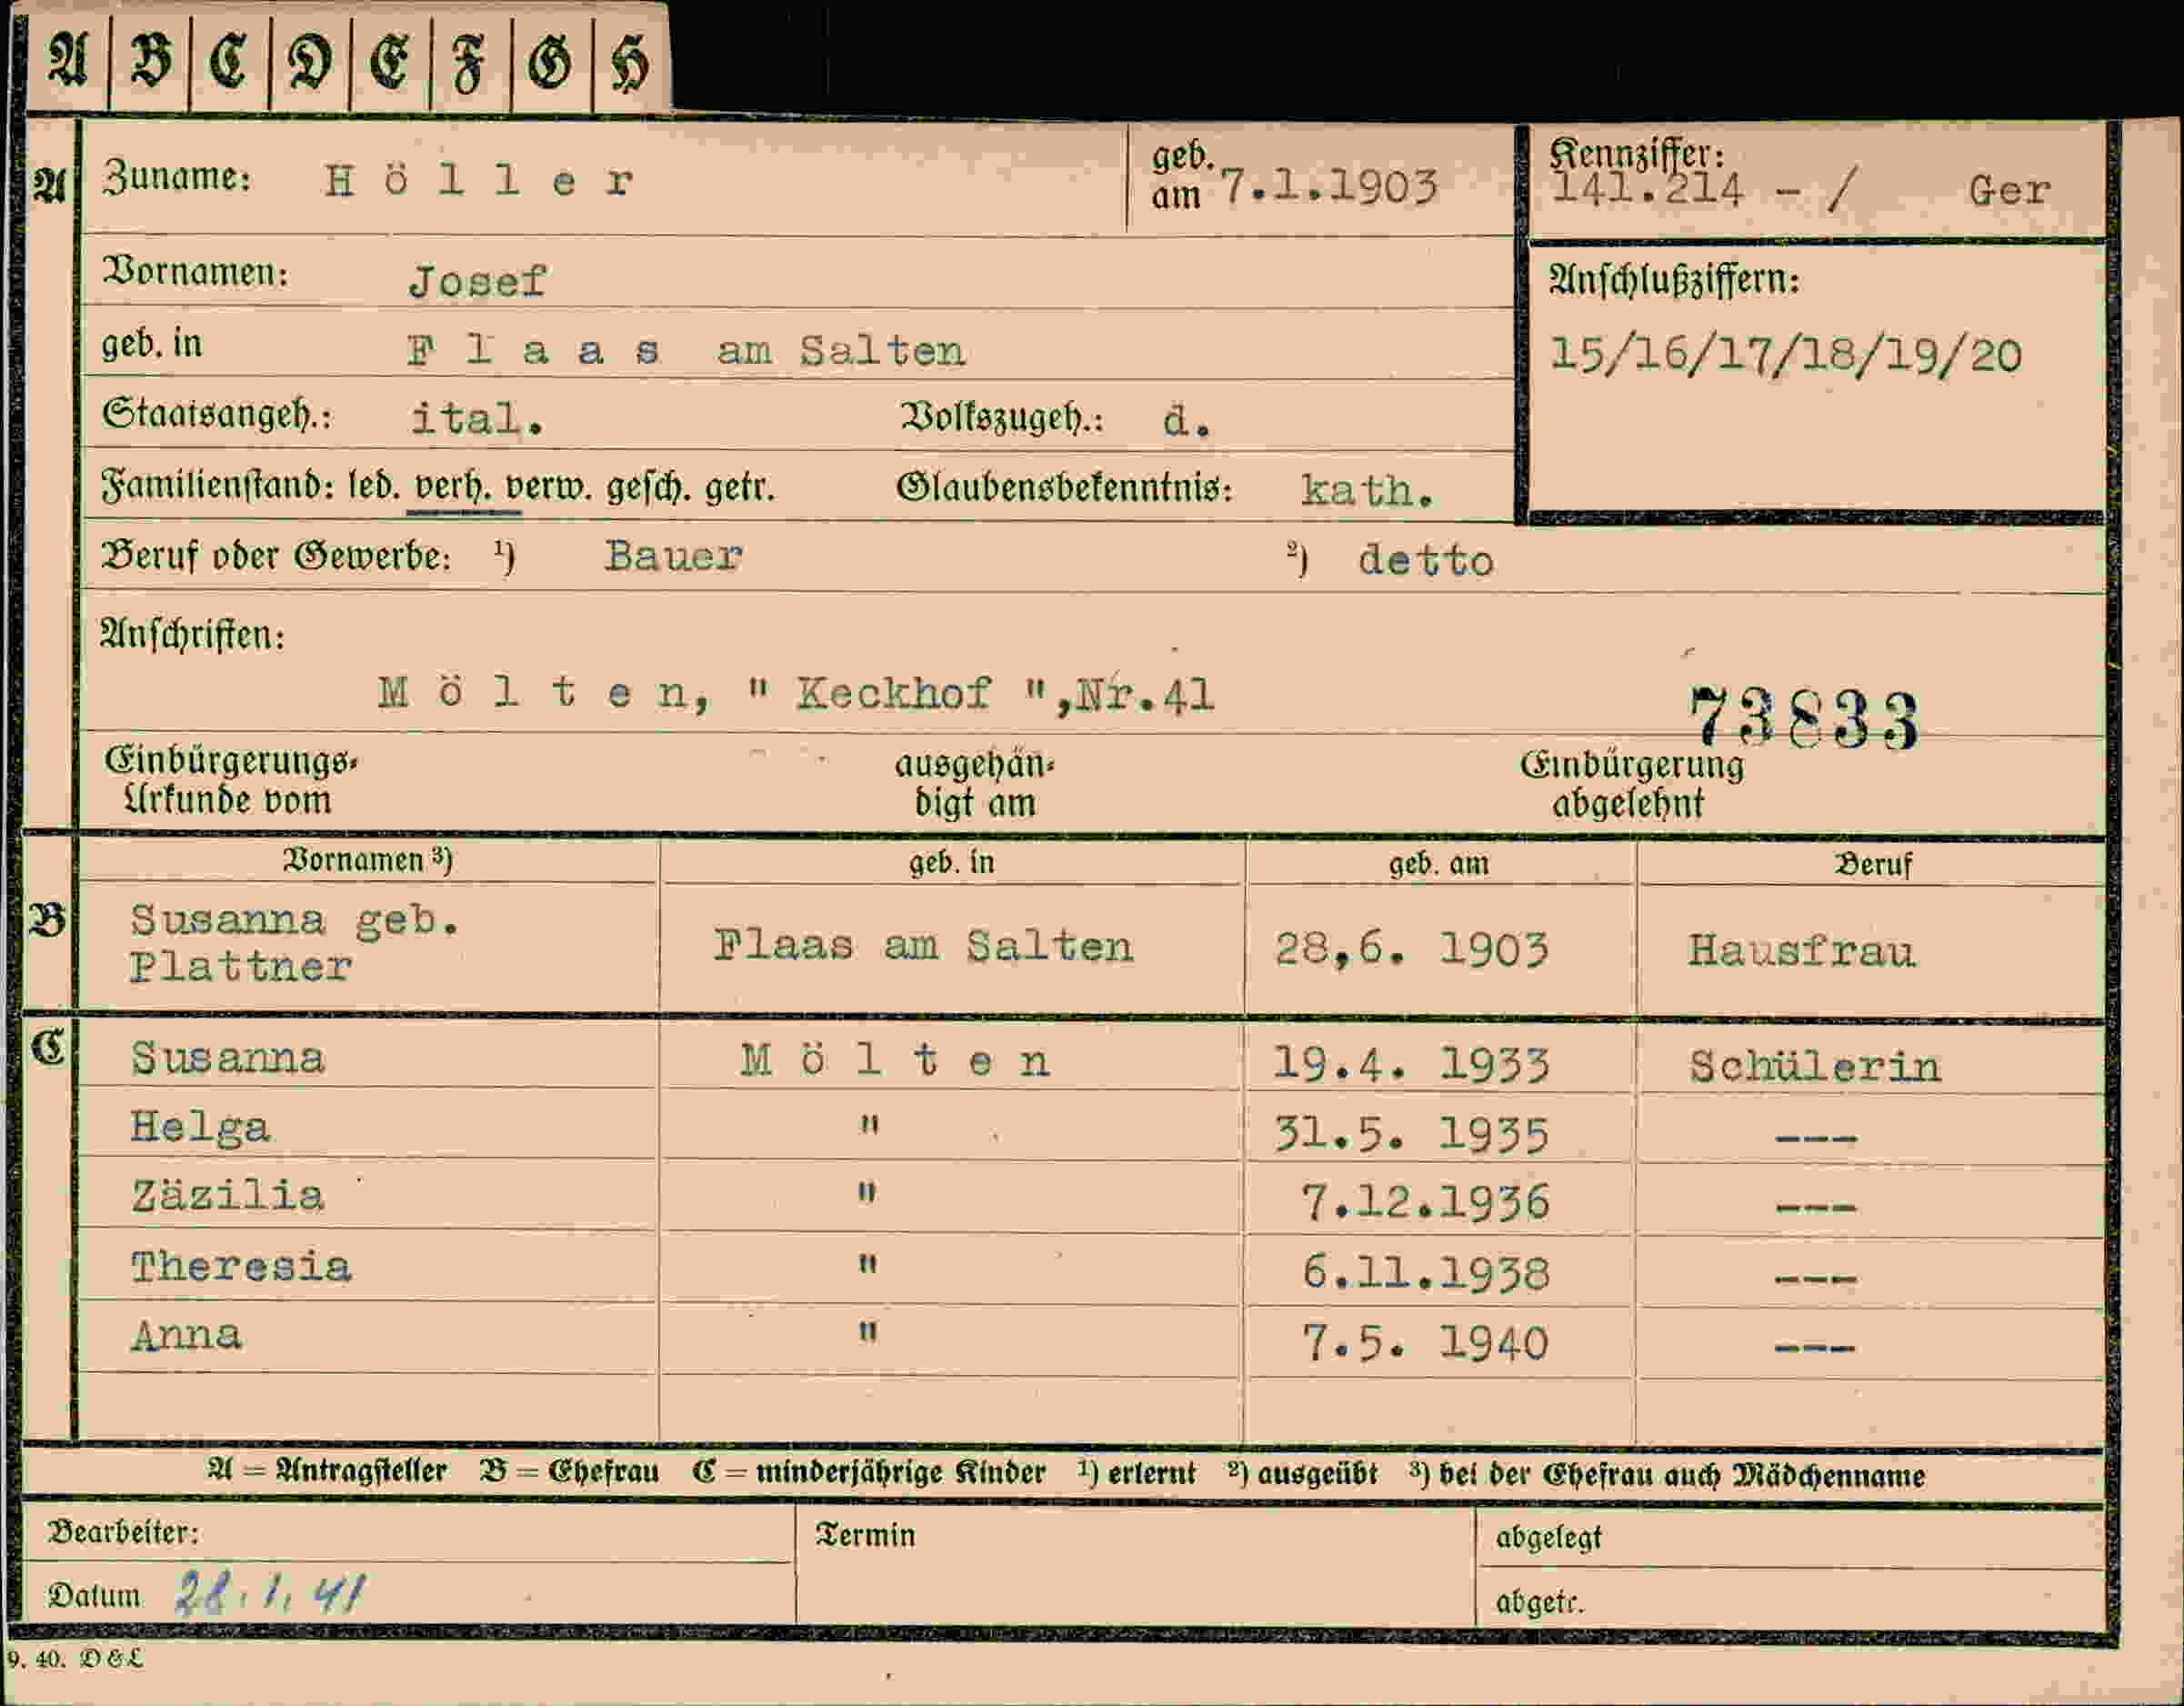 A B C D E F G H
A Zuname: Höller geb. am 7.1.1903 Kennziffer: 141.214 - / Ger
Vornamen: Josef Anschlußziffern:
geb. in Flaas am Salten 15/16/17/18/19/20
Staatsangeh.: ital. Volkszugeh.: d.
Familienstand: led. verh. verw. gesch. getr. Glaubensbekenntnis: kath.
Beruf oder Gewerbe: ¹) Bauer ²) detto
Anschriften:
Mölten, " Keckhof ",Nr.41
73833
Einbürgerungs- ausgehän- Einbürgerung
Urkunde vom digt am abgelehnt
Vornamen ³) geb. in geb. am Beruf
B Susanna geb. Plattner Flaas am Salten 28,6. 1903 Hausfrau
C Susanna Mölten 19.4. 1933 Schülerin
Helga " 31.5. 1935 ---
Zäzilia " 7.12.1936 ---
Theresia " 6.11.1938 ---
Anna " 7.5. 1940 ---
A = Antragsteller B = Ehefrau C = minderjährige Kinder ¹) erlernt ²) ausgeübt ³) bei der Ehefrau auch Mädchenname
Bearbeiter: Termin abgelegt
Datum 28.1.41 abgetr.
9. 40. D & L